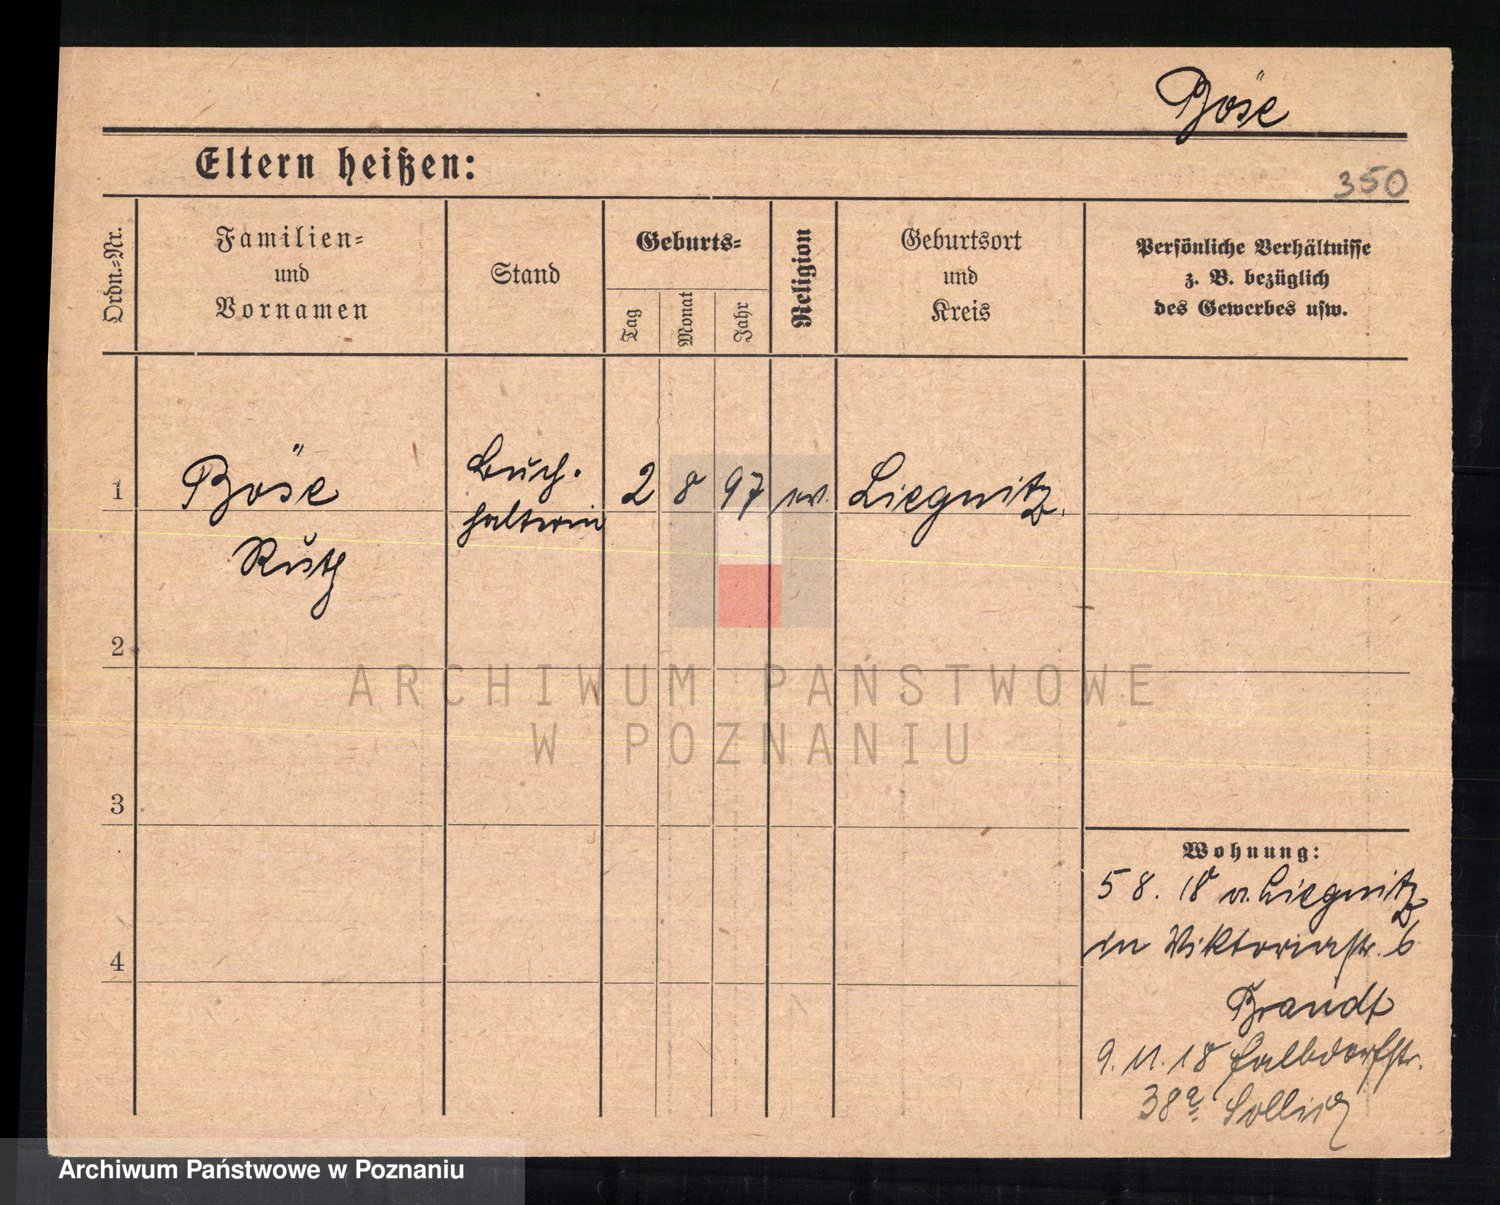 Böse
Eltern heißen:
350
Ordn.=Nr.
Familien=
und
Vornamen
Stand
Geburts=
Tag
Monat
Jahr
Religion
Geburtsort
und
Kreis
Persönliche Verhältnisse
z. B. bezüglich
des Gewerbes usw.
1
Böse
Ruth
Buch.
halterin
2
8
97
ev.
Liegnitz.
2
3
4
Wohnung:
5 8. 18 v. Liegnitz
in Viktoriastr. 6
Brandt
9. 11. 18 Halbdorfstr.
38a
ARCHIWUM PAŃSTWOWE
W POZNANIU
Archiwum Państwowe w Poznaniu